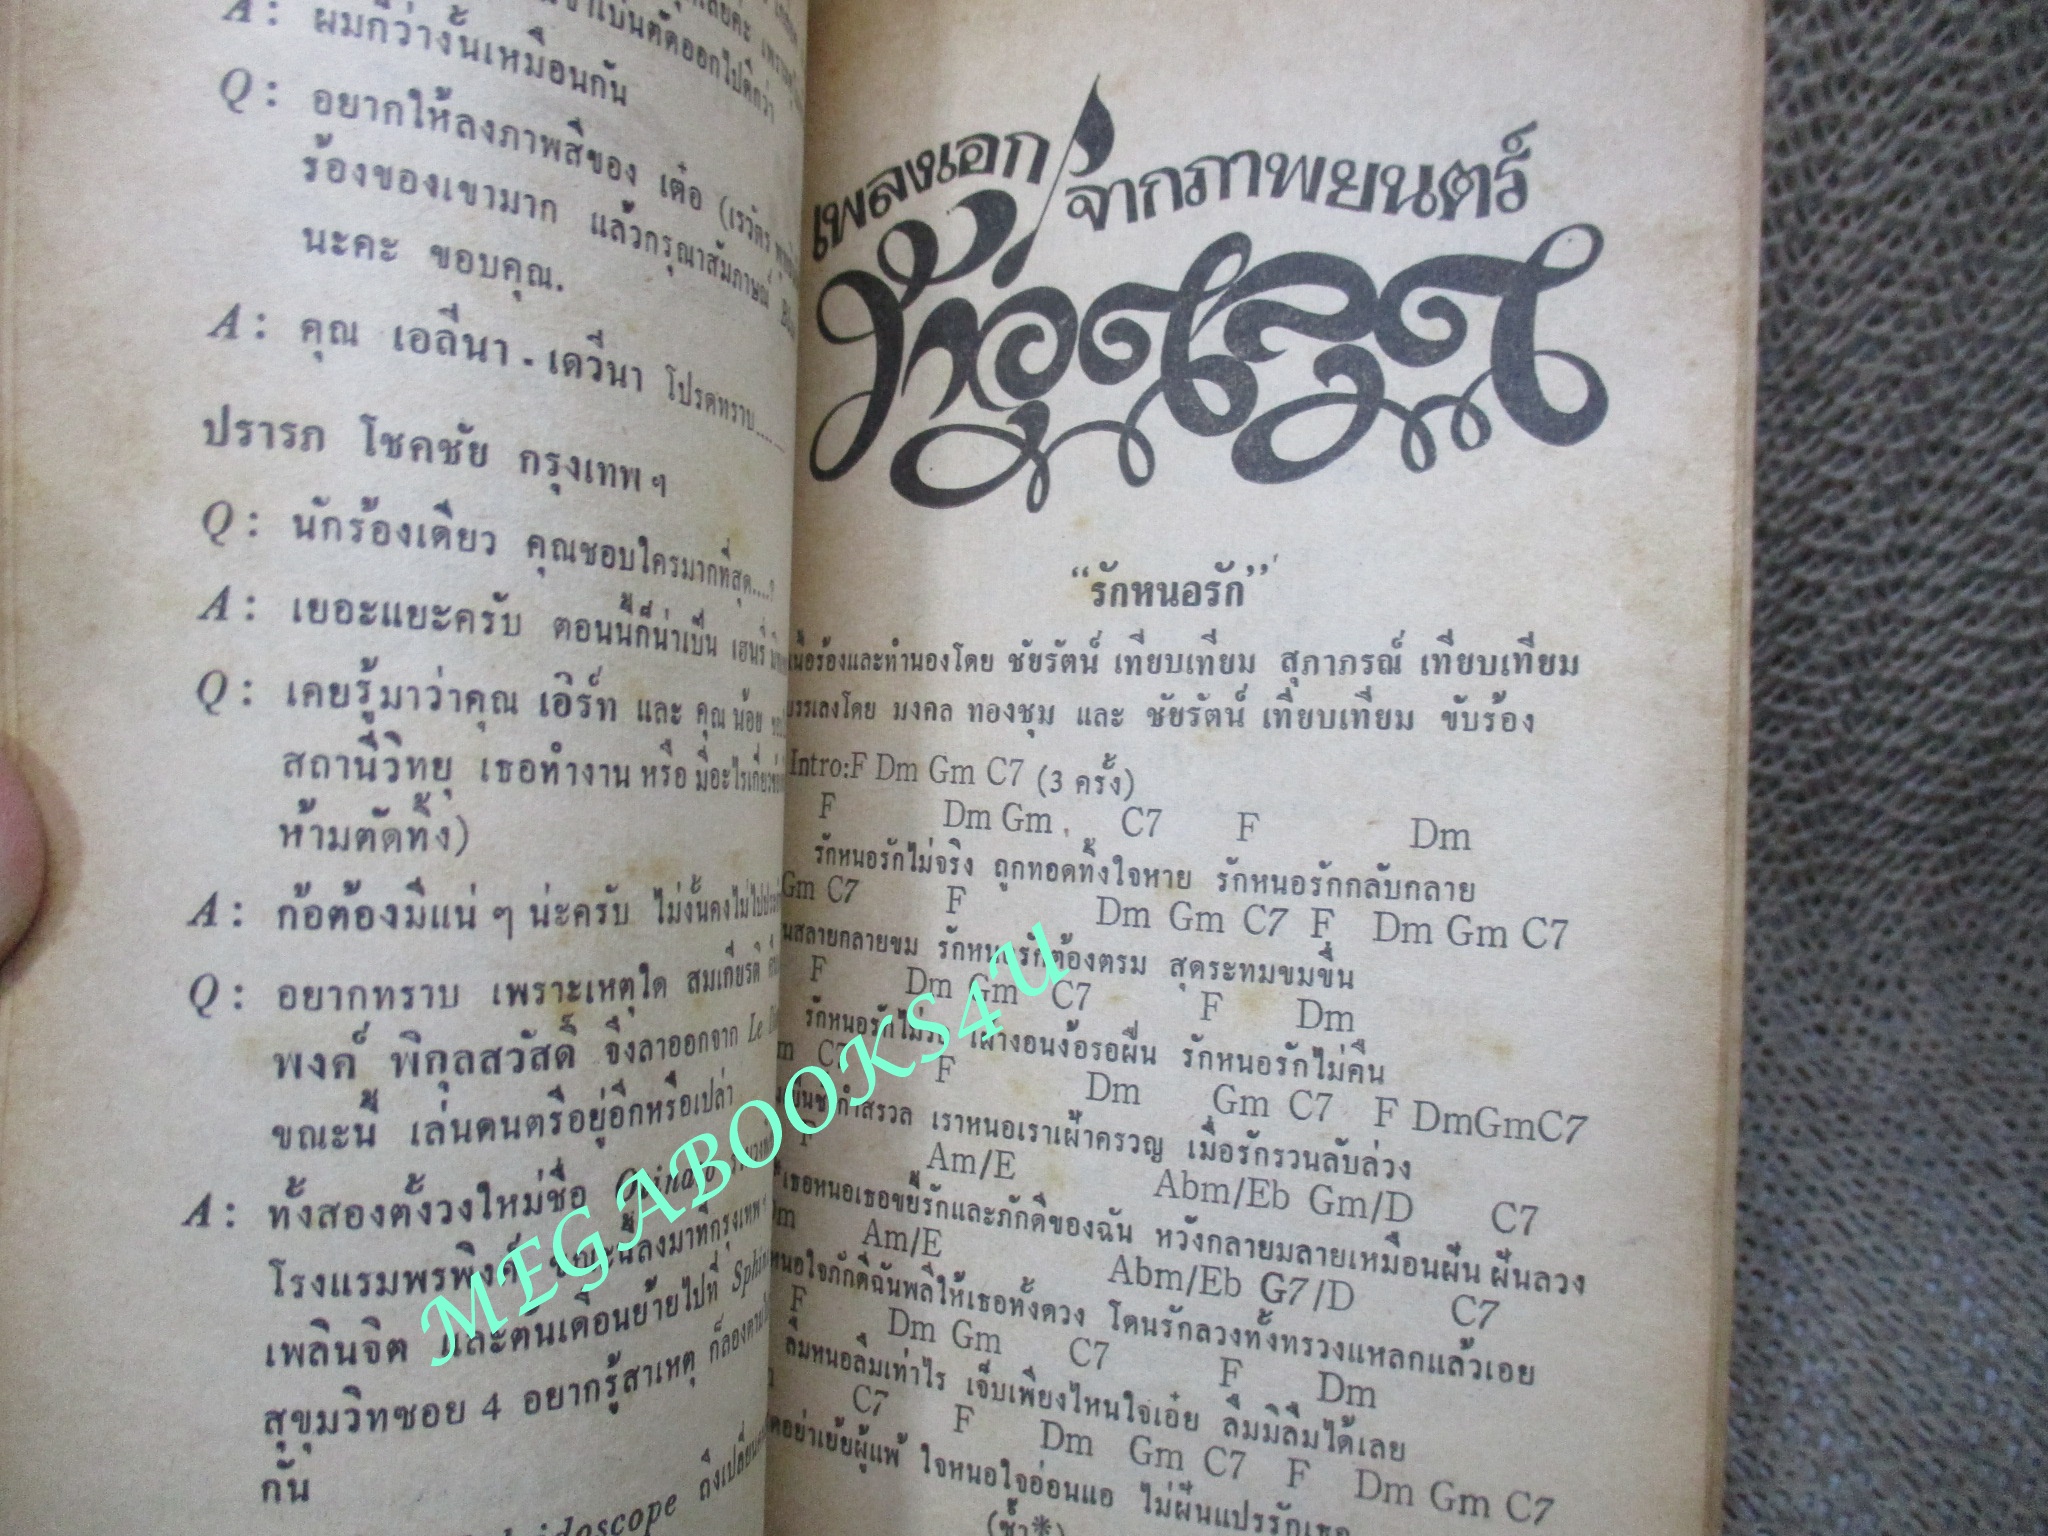 A: ผมก็ว่างั้นเหมือนกัน
Q: อยากให้ลงภาพสีของ เต๋อ (เรวัตร
ร้องของเขามาก แล้วกรุณาสัมภาษณ์
นะคะ ขอบคุณ.
A: คุณ เอลีนา - เดวีนา โปรดทราบ....
ปรารภ โชคชัย กรุงเทพฯ
Q: นักร้องเดียว คุณชอบใครมากที่สุด....?
A: เยอะแยะครับ ตอนนี้ก็น่าเป็น เฮนรี่
Q: เคยรู้มาว่าคุณ เอิร์ท และ คุณ น้อย
สถานีวิทยุ เธอทำงาน หรือ มีอะไรเกี่ยวข้อง
ห้ามตัดทิ้ง)
A: ก้อต้องมีแน่ ๆ น่ะครับ ไม่งั้นคงไม่ไป
Q: อยากทราบ เพราะเหตุใด สมเกียรติ
พงค์ พิกุลสวัสดิ์ จึงลาออกจาก Le
ขณะนี้ เล่นดนตรีอยู่อีกหรือเปล่า
A: ทั้งสองตั้งวงใหม่ชื่อ
โรงแรมพรพิงค์ ขณะนี้ลงมาที่กรุงเทพฯ
เพลินจิต และต้นเดือนย้ายไปที่
สุขุมวิทซอย 4 อยากรู้สาเหตุ ก็ลอง
กัน
ถึงเปลี่ยน
เพลงเอกจากภาพยนตร์
"รักหนอรัก"
เนื้อร้องและทำนองโดย ชัยรัตน์ เทียบเทียม สุภาภรณ์ เทียบเทียม
บรรเลงโดย มงคล ทองชุม และ ชัยรัตน์ เทียบเทียม ขับร้อง
Intro:F Dm Gm C7 (3 ครั้ง)
F Dm Gm C7 F Dm
รักหนอรักไม่จริง ถูกทอดทิ้งใจหาย รักหนอรักกลับกลาย
Gm C7 F Dm Gm C7 F Dm Gm C7
สลายกลายขม รักหนอรักต้องตรม สุดระทมขมขื่น
F Dm Gm C7 F Dm
รักหนอรักไม่ เฝ้างอนง้อรอผืน รักหนอรักไม่คืน
C7 F Dm Gm C7 F DmGmC7
กำสรวล เราหนอเราเฝ้าครวญ เมื่อรักรวนลับล่วง
F Am/E Abm/Eb Gm/D C7
เธอหนอเธอขยี้รักและภักดีของฉัน หวังกลายมลายเหมือนฝัน ฝันลวง
Am/E Abm/Eb G7/D C7
หนอใจภักดีฉันพลีให้เธอทั้งดวง โดนรักลวงทั้งทรวงแหลกแล้วเอย
F Dm Gm C7 F Dm
ลืมหนอลืมเท่าไร เจ็บเพียงไหนใจเอ๋ย ลืมมิลืมได้เลย
C7 F Dm Gm C7 F Dm Gm C7
อย่าเย้ยผู้แพ้ ใจหนอใจอ่อนแอ ไม่ผันแปรรักเธอ
(ซ้ำ*)
MEGABOOKS4U